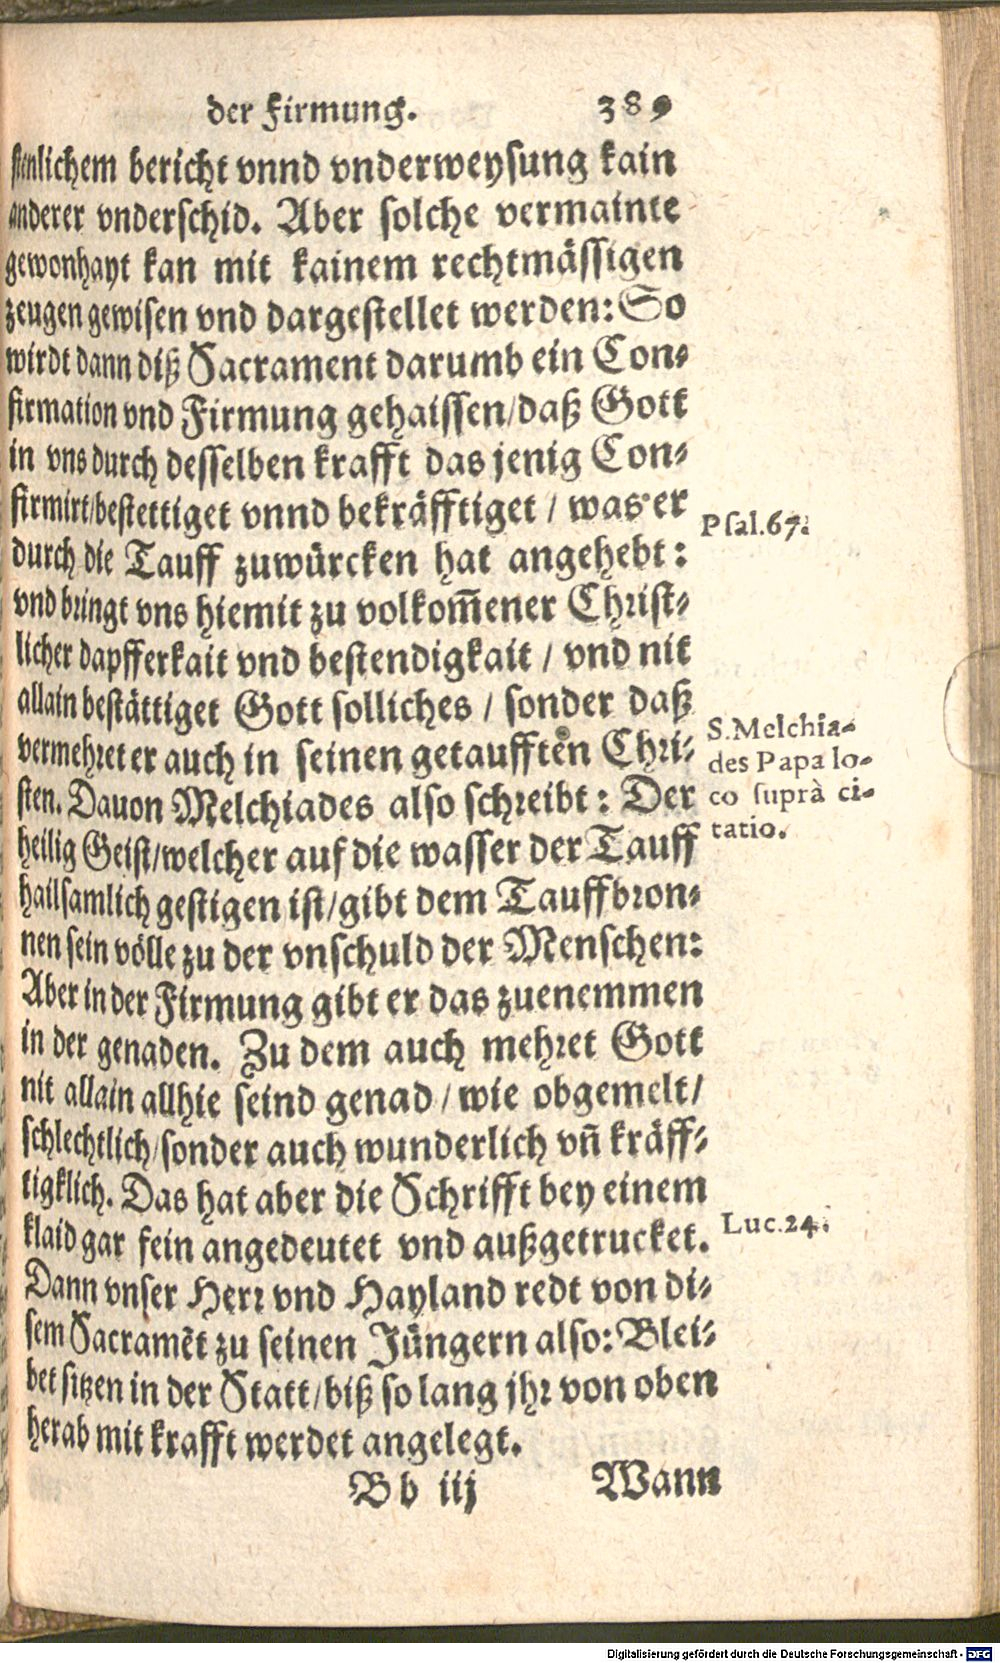 der Firmung. 389
stenlichem bericht vnnd vnderweysung kain
anderer vnderschid. Aber solche vermainte
gewonhayt kan mit kainem rechtmässigen
zeugen gewisen vnd dargestellet werden: So
wirdt dann diß Sacrament darumb ein Con⸗
firmation vnd Firmung gehaissen/daß Gott
in vns durch desselben krafft das jenig Con⸗
firmirt/bestettiget vnnd bekräfftiget / was er
Psal.67.
durch die Tauff zuwürcken hat angehebt:
vnd bringt vns hiemit zu volkom̃ener Christ⸗
licher dapfferkait vnd bestendigkait / vnd nit
allain bestättiget Gott solliches / sonder daß
vermehret er auch in seinen getaufften Chri⸗
sten. Dauon Melchiades also schreibt: Der
S.Melchia-
des Papa lo-
co suprà ci-
tatio.
heilig Geist/welcher auf die wasser der Tauff
hailsamlich gestigen ist/gibt dem Tauffbron⸗
nen sein völle zu der vnschuld der Menschen:
Aber in der Firmung gibt er das zuenemmen
in der genaden. Zu dem auch mehret Gott
nit allain allhie seind genad / wie obgemelt/
schlechtlich/sonder auch wunderlich vñ kräff⸗
tigklich. Das hat aber die Schrifft bey einem
klaid gar fein angedeutet vnd außgetrucket.
Luc.24.
Dann vnser Herr vnd Hayland redt von di⸗
sem Sacramẽt zu seinen Jüngern also: Blei⸗
bet sitzen in der Statt/biß so lang jhr von oben
herab mit krafft werdet angelegt.
Bb iij Wann
Digitalisierung gefördert durch die Deutsche Forschungsgemeinschaft - DFG